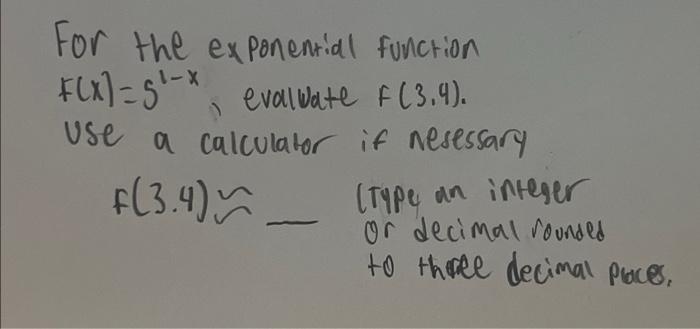 For the exponential function
f(x)=5^{1-x}, evaluate f(3.4).
use a calculator if nesessary
f(3.4)≈ __ (Type an integer
or decimal rounded
to three decimal places.